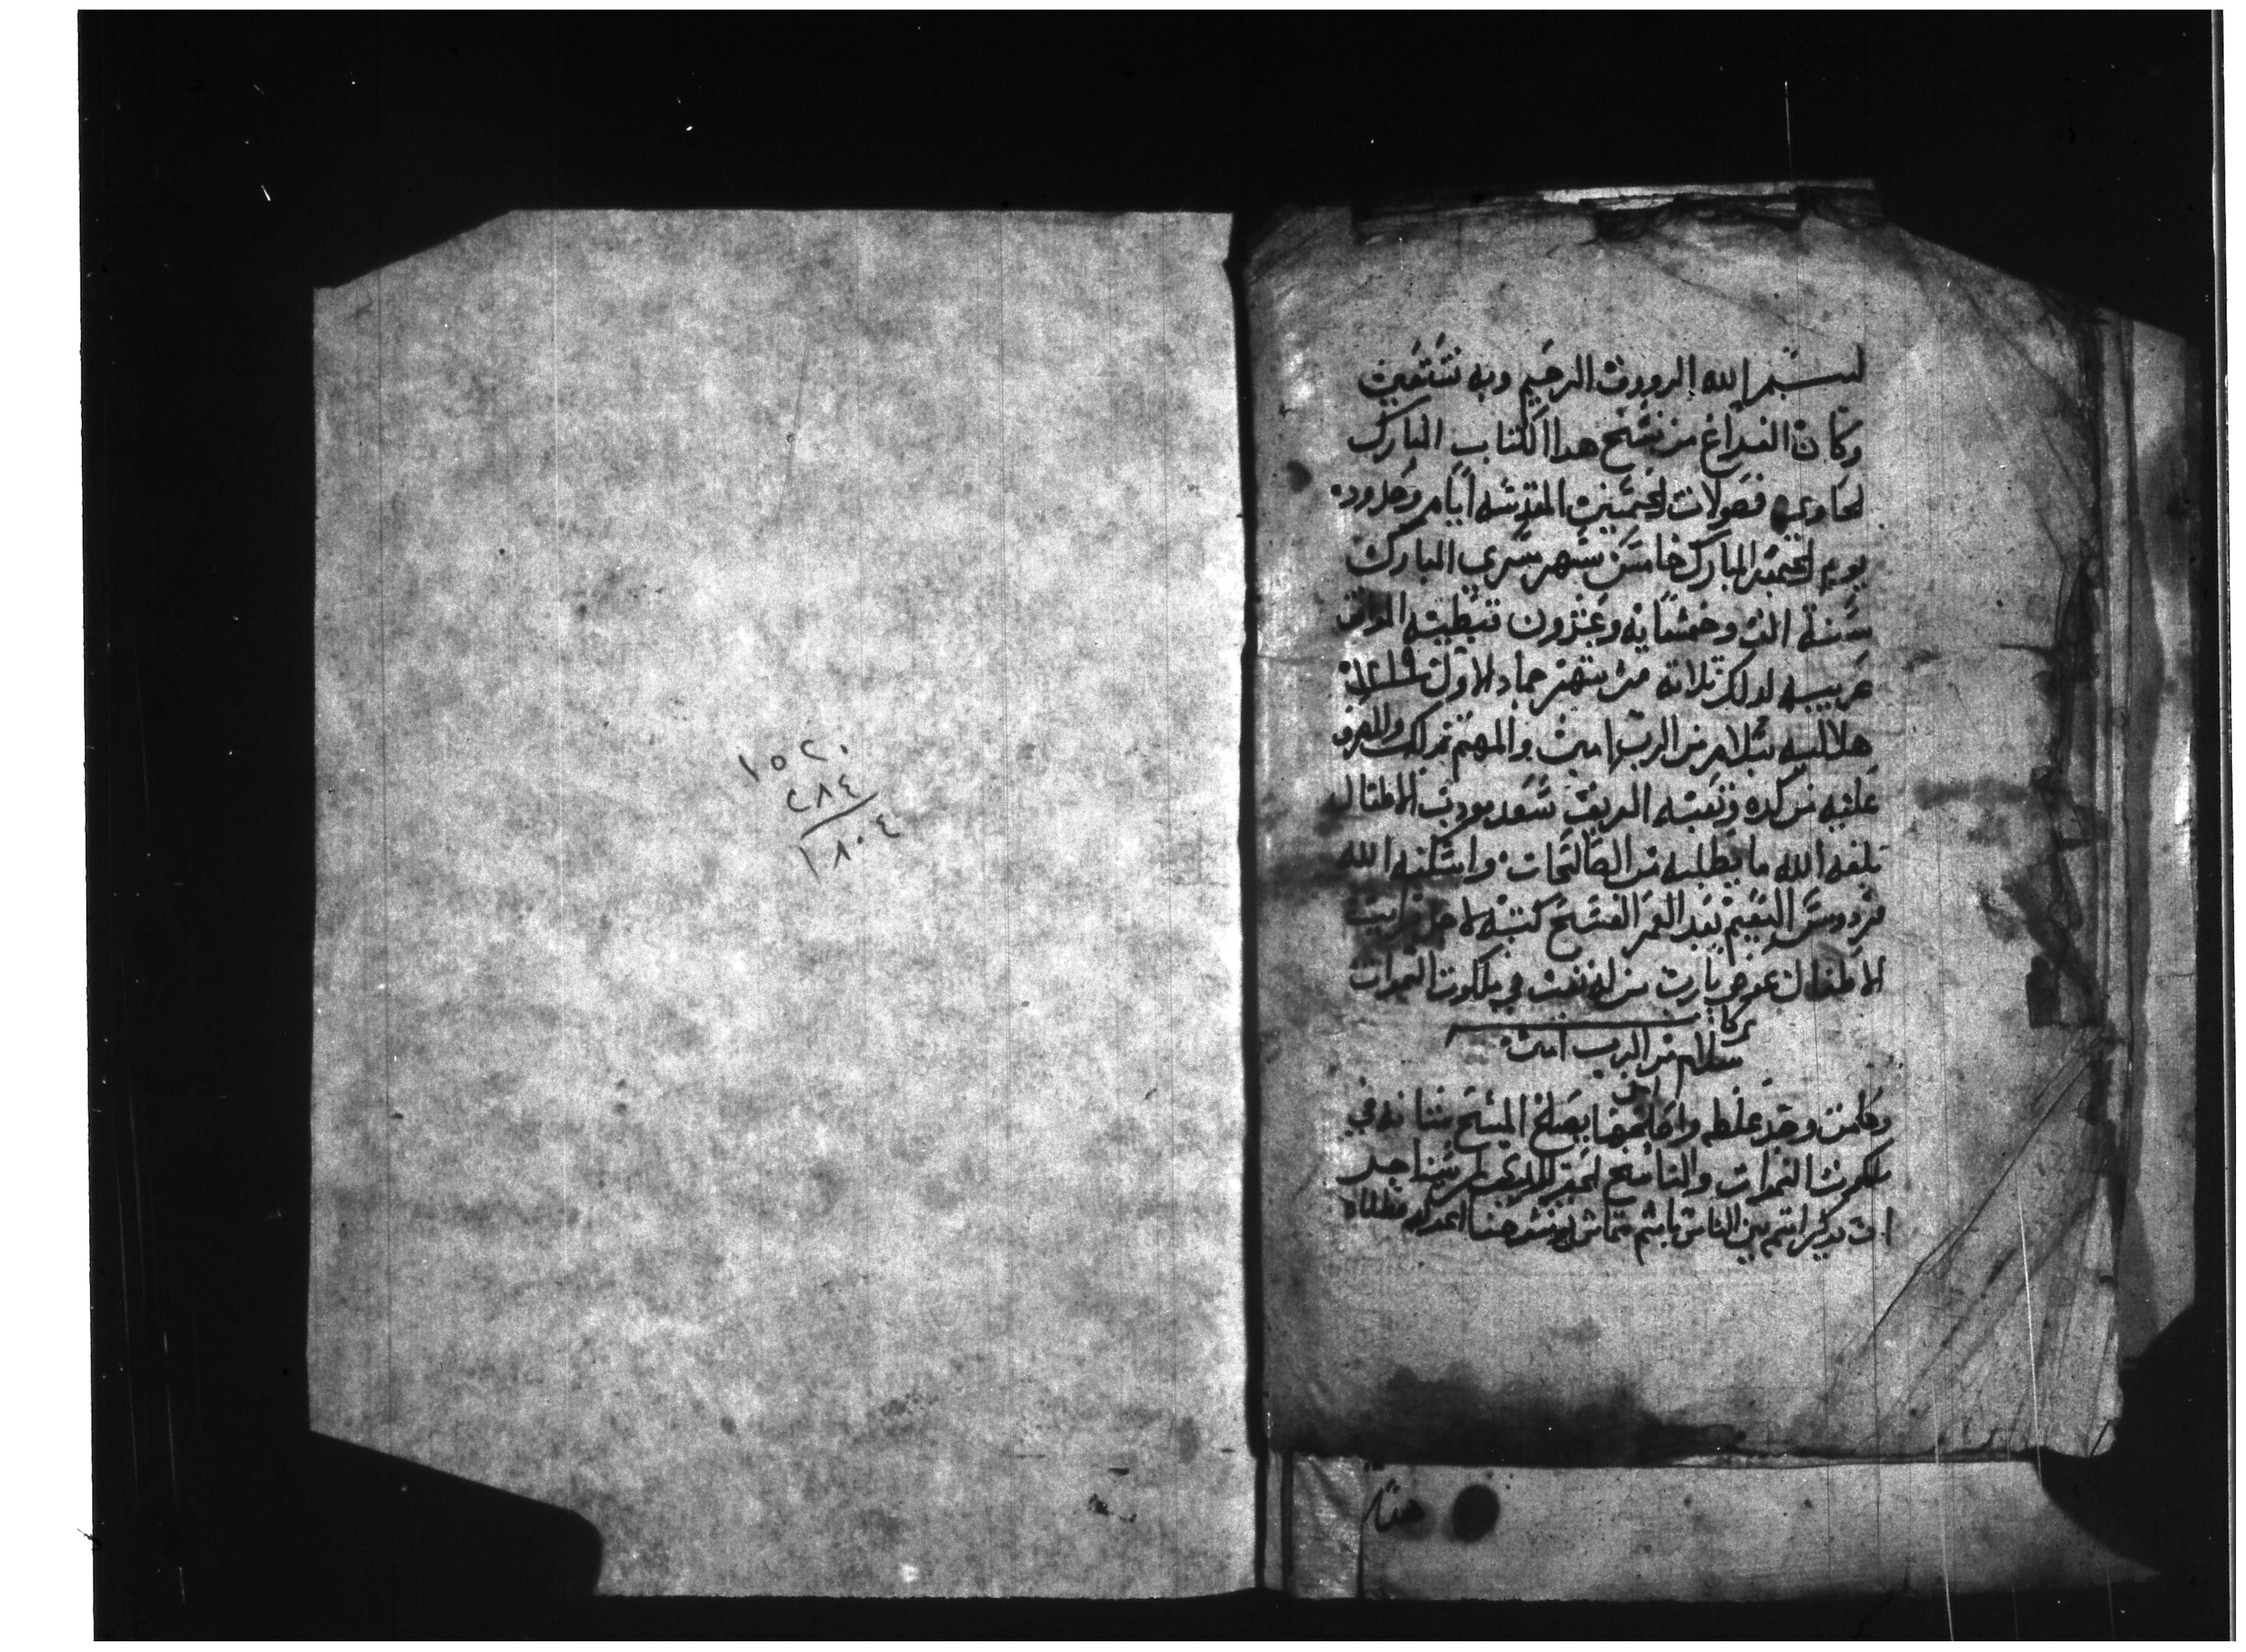 بسم الله الرووف الرحيم وبه نستعين
وكان الفراغ من نسخ هدا الكتاب المبارك
لحاوي فصولات الخمسين المقدسه ايام وحدوده
يوم الخميس المبارك خامس شهر مسري المبارك
سنة الف وخمسمايه وعشرون قبطيه الموافق
عربيه لدلك تلاته من شهر جماد الاول
هلاليه بسلام من الرب امين والمهتم بدلك والمصرف
عليه من كده وتعبه العريف سعد مودب الاطفال
بلغه الله ما يطلبه من الصالحات واسكنه الله
فردوس النعيم بعد العمر الفسيح كتبه لاجل
الاطفال عوض يارب من له تعب في ملكوت السموات
كمل
بسلام من الرب امين
وكلمن وجد غلطه واصلحها يصلح المسيح شانه في
ملكوت السموات والناسخ الحقير
ان يدكر اسم بين الناس باسم شماس
هنا
١٥٢٠
٢٨٤
١٨٠٤